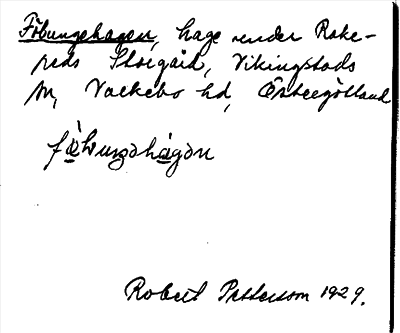 Föbungehagen, hage under Rake-
reds Storgård, Vikingstads
sn, Valkebo hd, Östergötland
fö̀buŋəhagən
Robert Pettersson 1929.